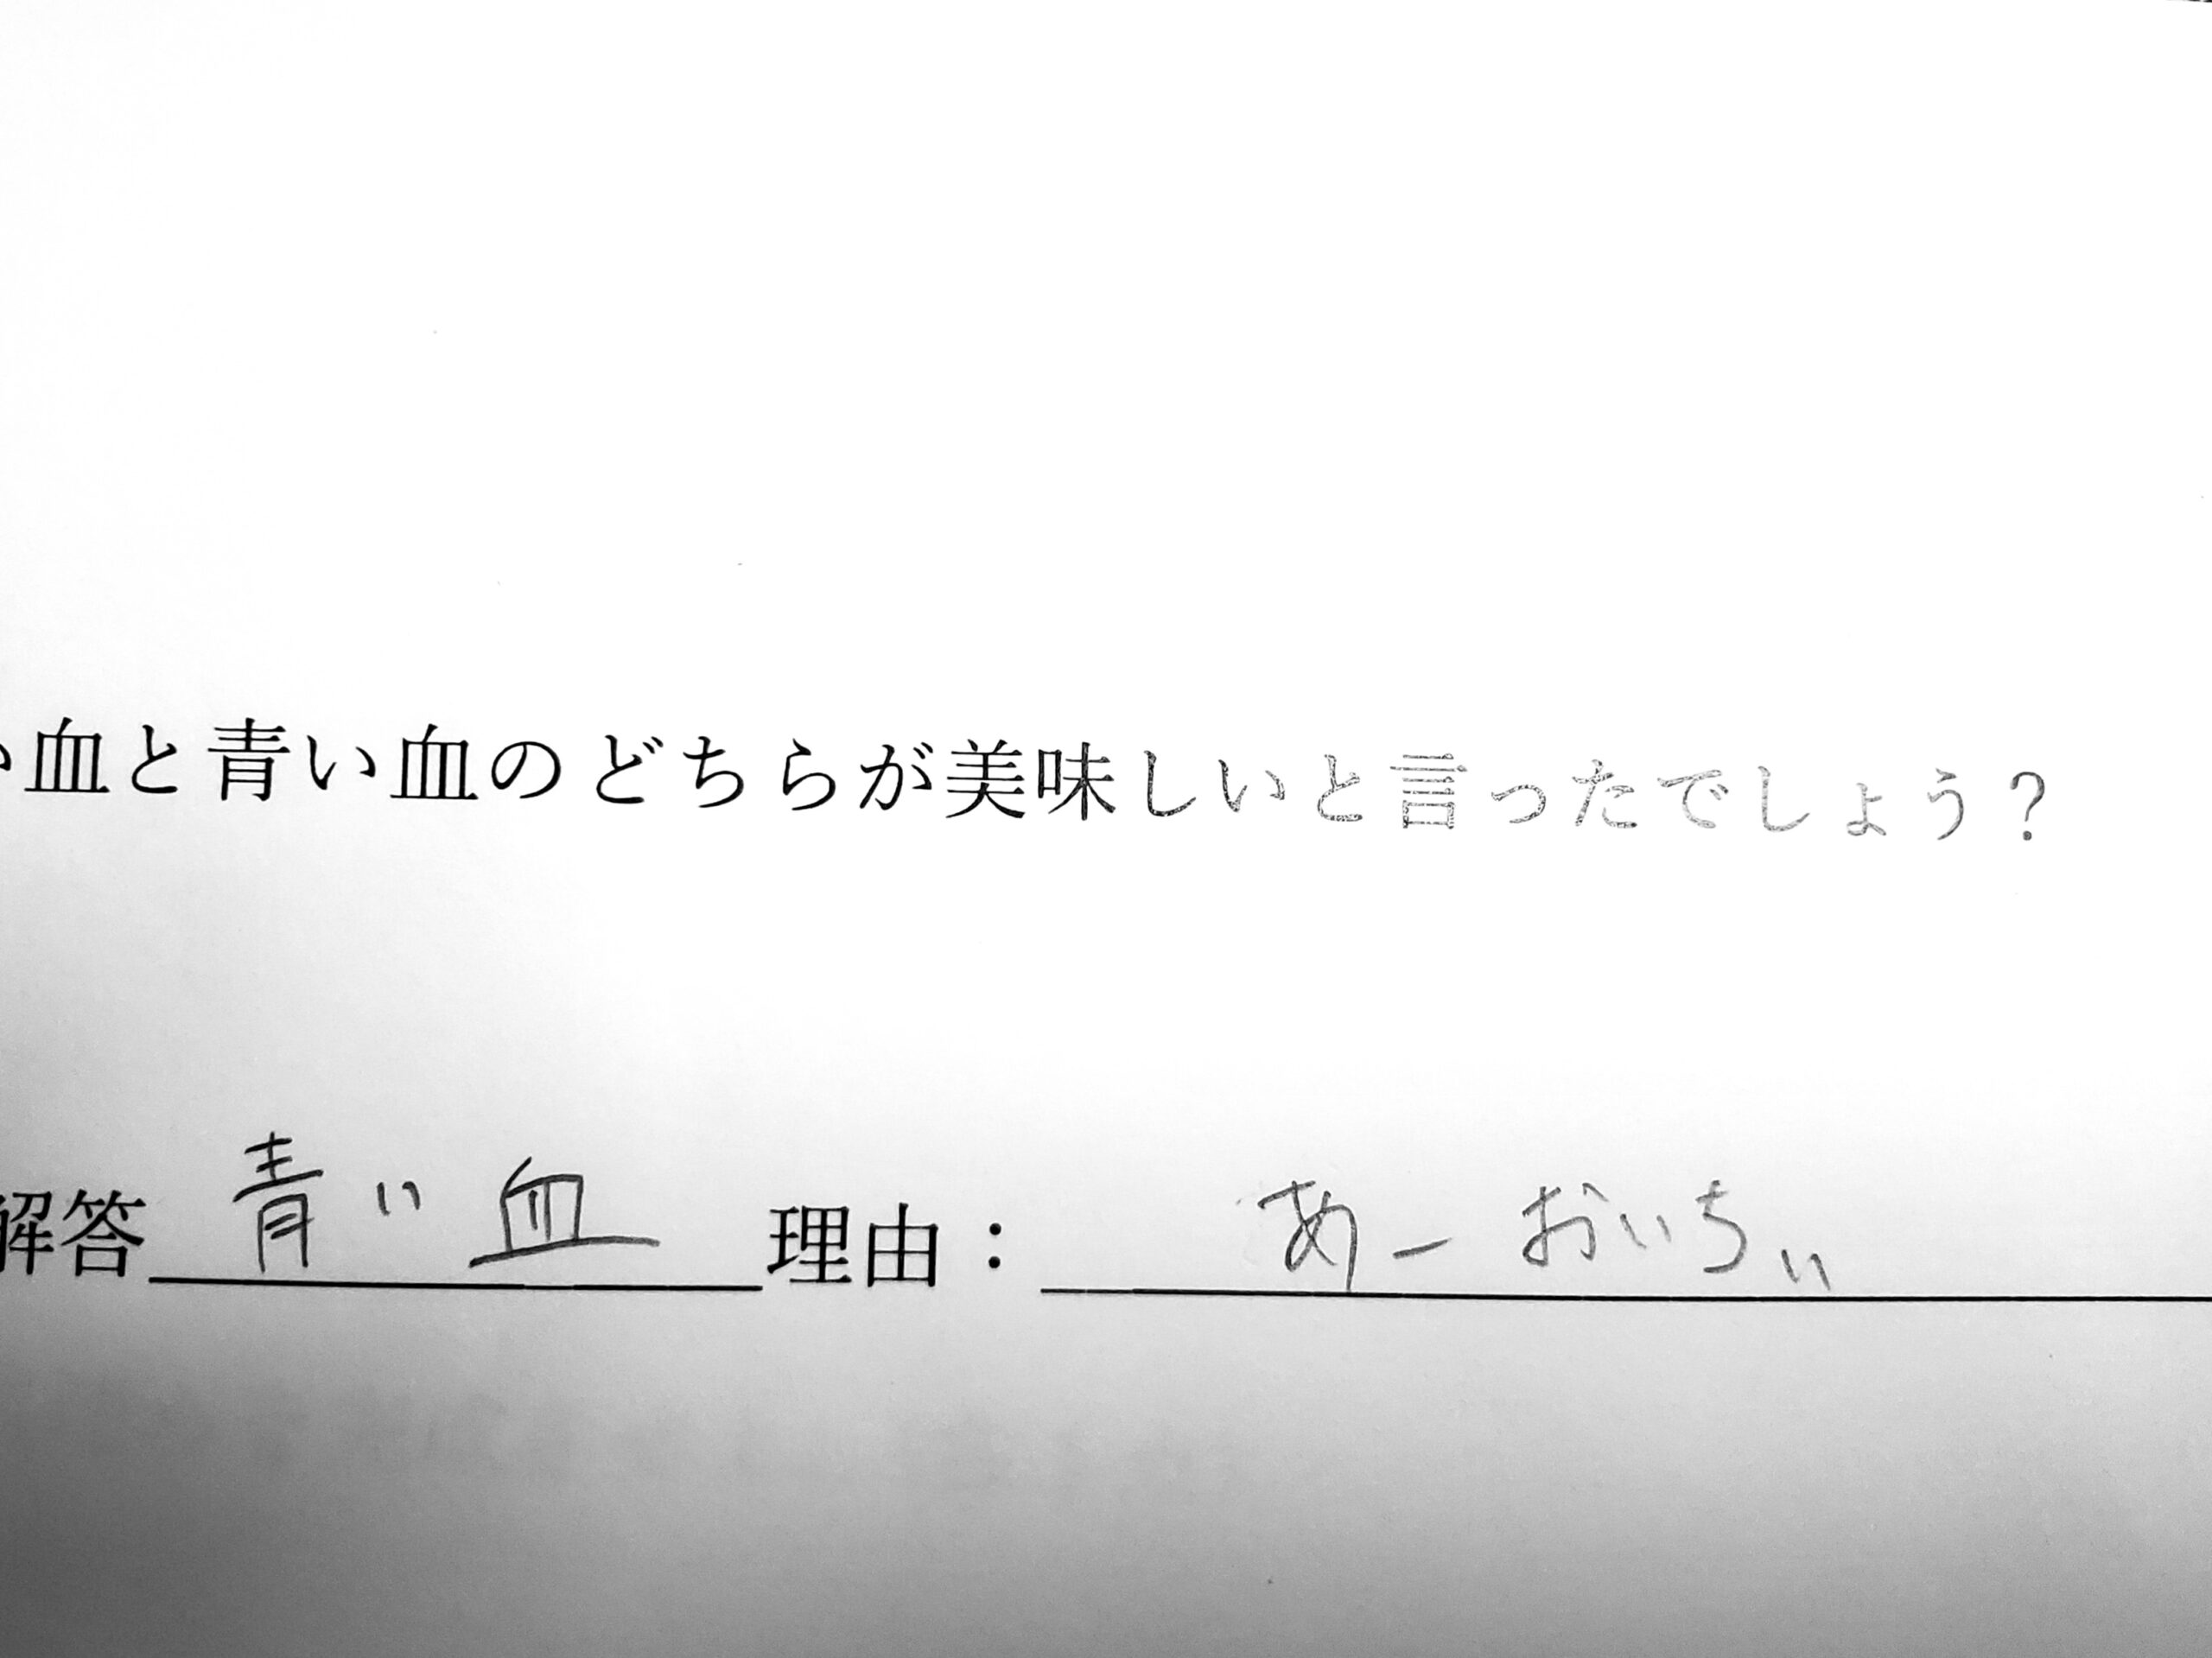 血と青い血のどちらが美味しいと言ったでしょう？
解答 青い血 理由： あーおいちい